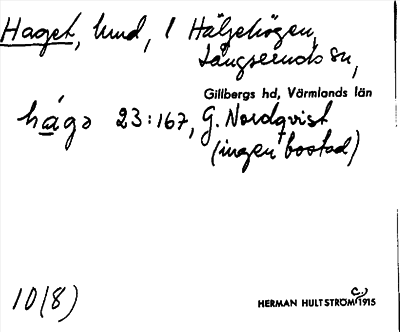 Haget, lund, l Häljehögen,
Långseruds sn,
Gillbergs hd, Värmlands län
hágə 23:167, G. Nordqvist
(ingen bostad)
10(8)
HERMAN HULTSTRÖM (c.) 1915